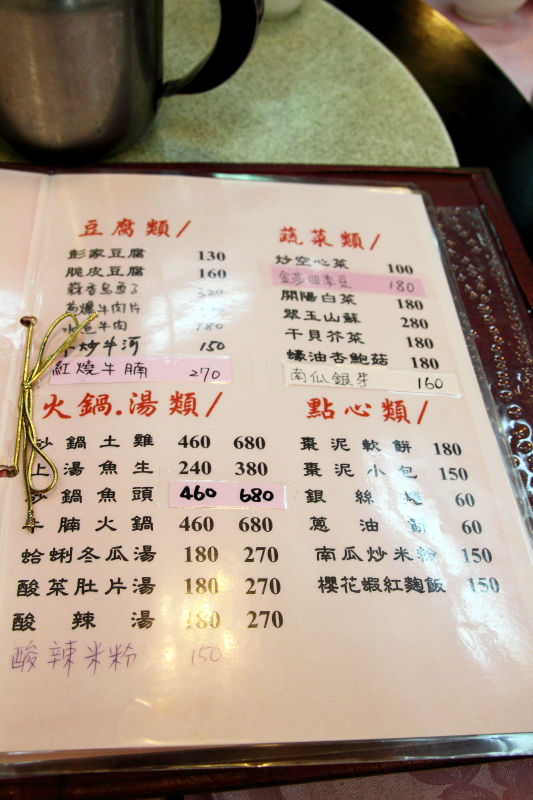 豆腐類/
彭家豆腐 130
脆皮豆腐 160
蒜香烏 320
爆牛肉片
牛肉 180
炒牛河 150
紅燒牛腩 270
蔬菜類/
炒空心菜 100
金莎四季豆 180
開陽白菜 180
翠玉山蘇 280
干貝芥菜 180
蠔油杏鮑菇 180
南仙銀芽 160
火鍋.湯類/
砂鍋土雞 460 680
上湯魚生 240 380
砂鍋魚頭 460 680
牛腩火鍋 460 680
蛤蜊冬瓜湯 180 270
酸菜肚片湯 180 270
酸辣湯 180 270
酸辣米粉 150
點心類/
棗泥軟餅 180
棗泥小包 150
銀絲 60
蔥油餅 60
南瓜炒米粉 150
櫻花蝦紅麴飯 150